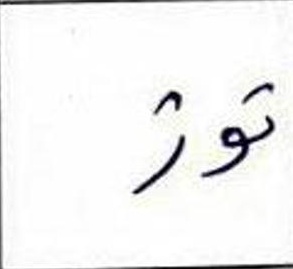 توژ